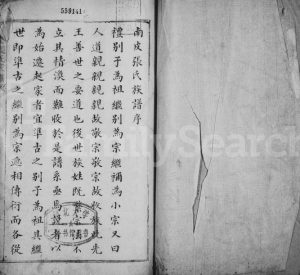 559141
南皮張氏族譜序
禮別子為祖繼別為宗繼禰為小宗又曰
人道親親親親故尊祖尊祖故敬宗敬宗故收族此先
王善世之要道也後世族姓既繁宗法不
立其精漠而難收於是譜系亟焉譜者以
為始遷起家者宜準古之別子為祖其繼
世即準古之繼別為宗遞相傳衍而各從
FamilySearch